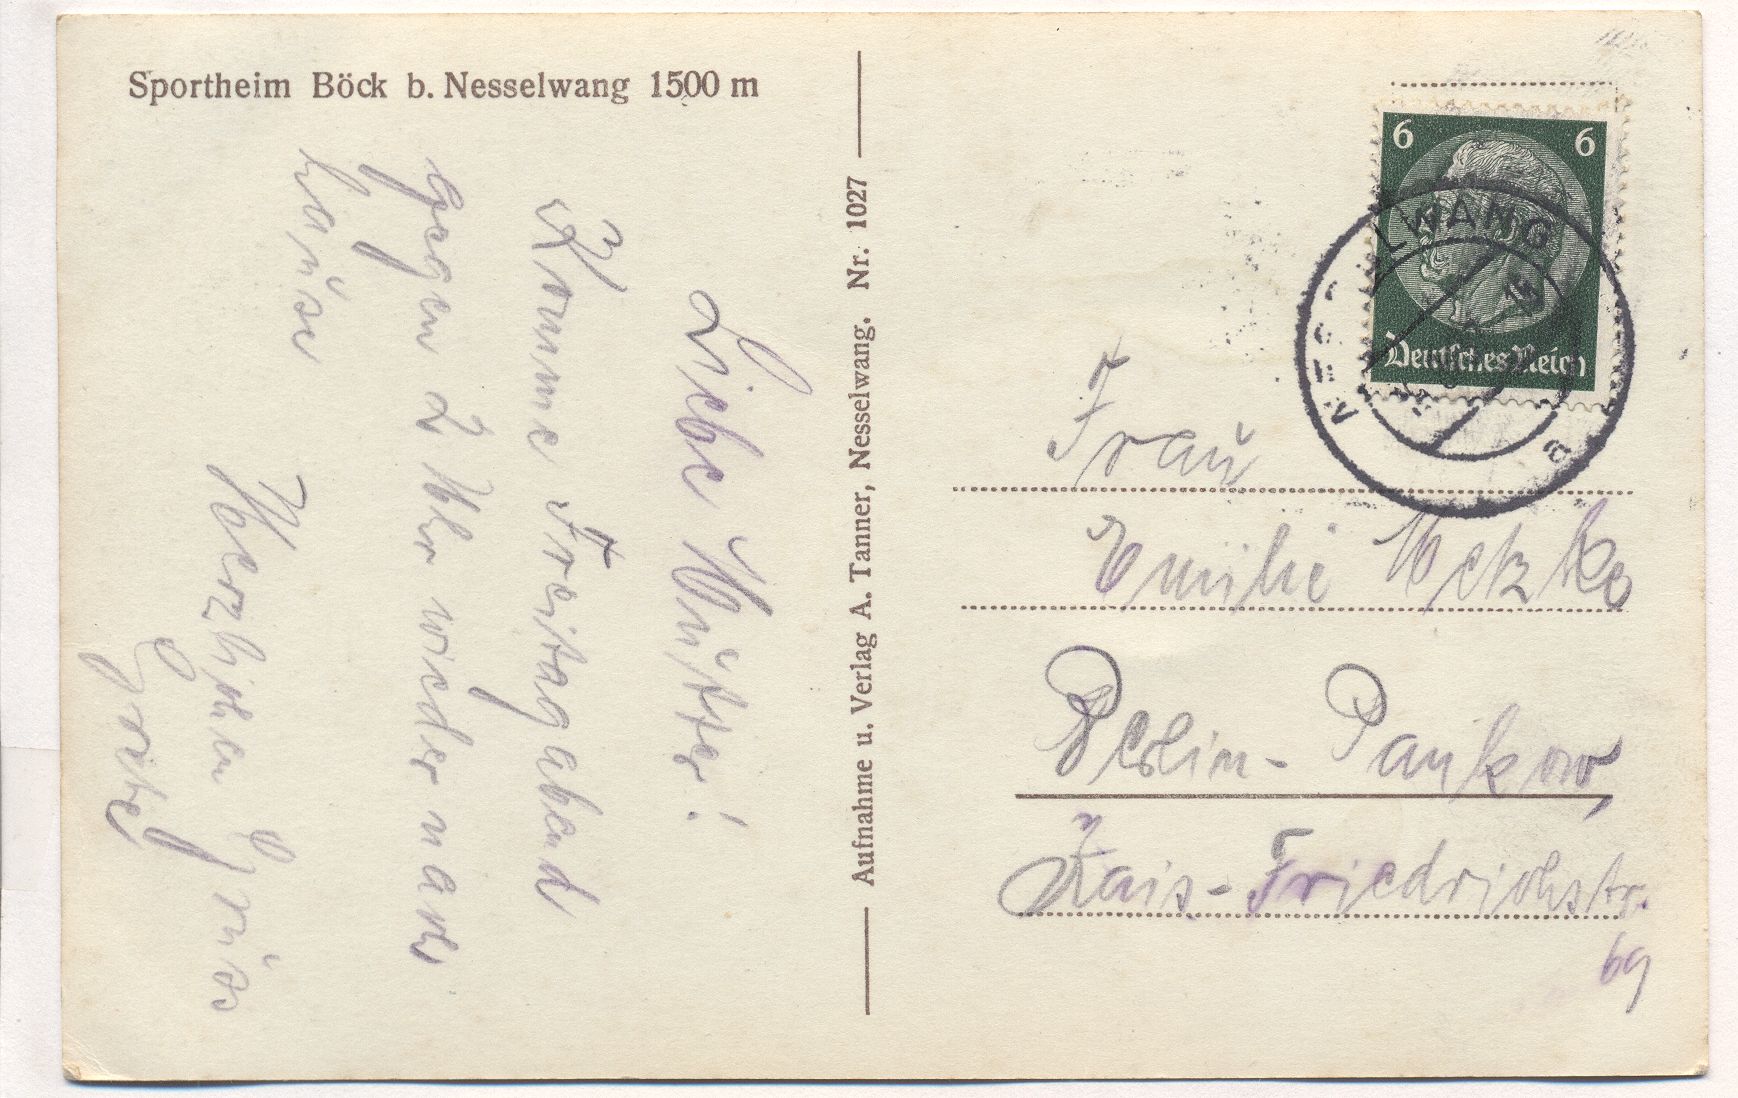 Sportheim Böck b. Nesselwang 1500 m
Liebe Mutter!
Komme Freitagabend
gegen 2 Uhr wieder nach
Hause
Herzlichen Gruss
Aufnahme u. Verlag A. Tanner, Nesselwang. Nr. 1027
6 6
Deutsches Reich
Frau
Emilie Metzke
Berlin-Pankow,
Kais-Friedrichstr.
69